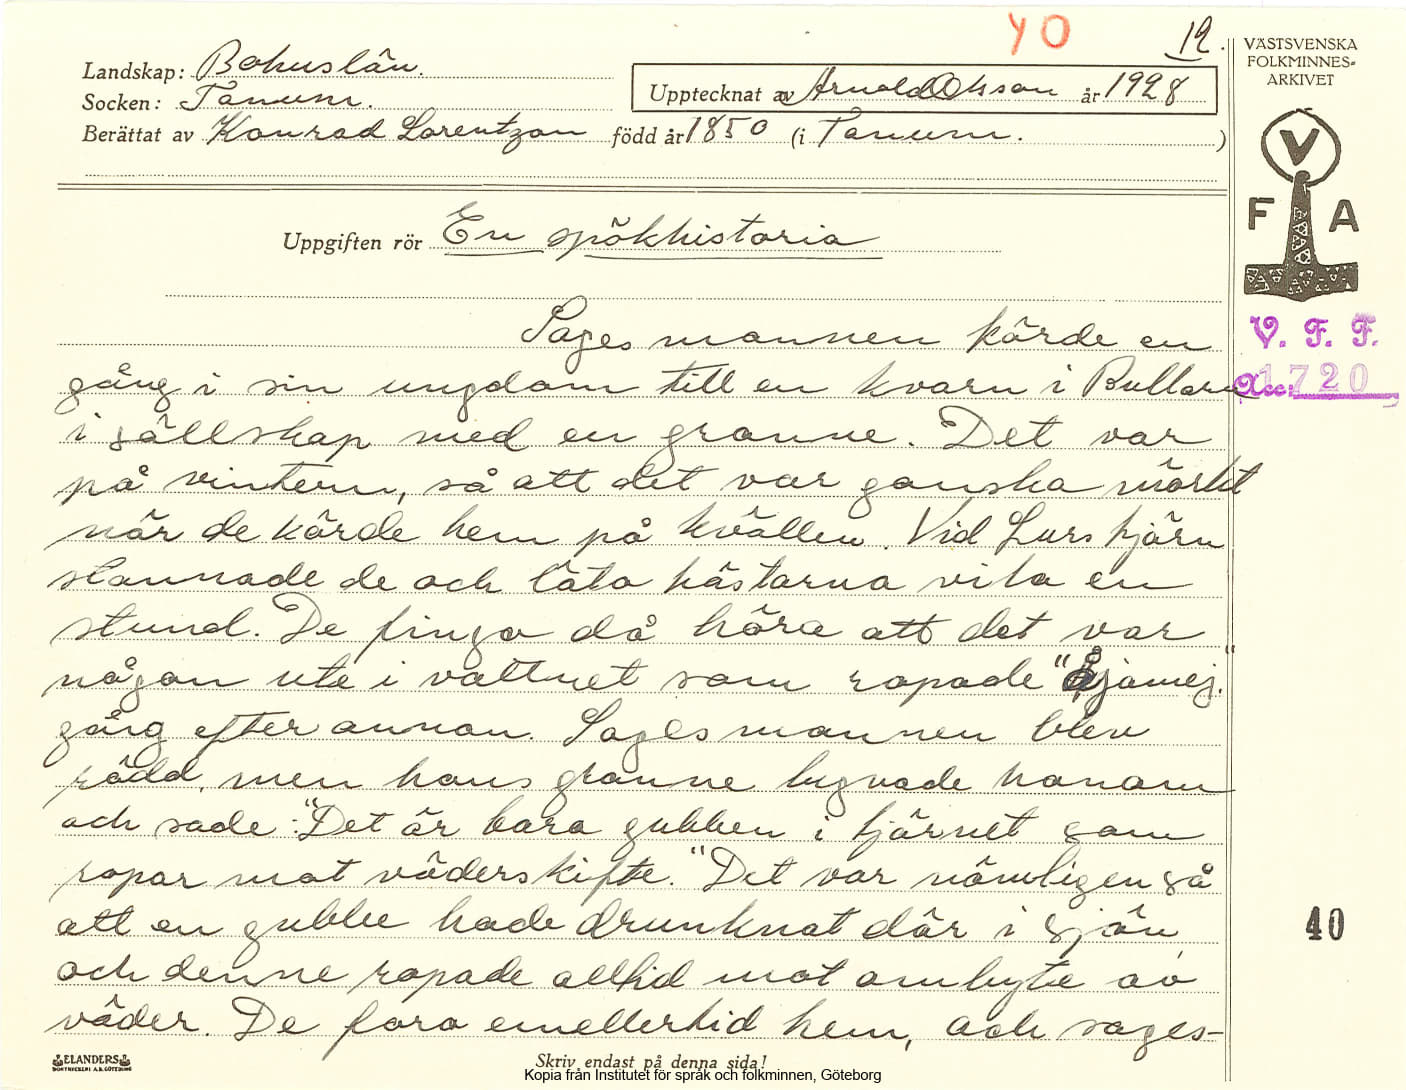 40
12.
Landskap: Bohuslän.
Socken: Tanum.
Upptecknat av Arnold Olsson år 1928
Berättat av Konrad Lorentzon född år 1850 (i Tanum. )
VÄSTSVENSKA
FOLKMINNES-
ARKIVET
V
F A
V. F. F.
Acc: 1720
Uppgiften rör En spökhistoria
Sagesmannen körde en
gång i sin ungdom till en kvarn i Bullaren
i sällskap med en granne. Det var
på vintern, så att det var ganska mörkt
när de körde hem på kvällen. Vid Lurs tjärn
stannade de och läto hästarna vila en
stund. De fingo då höra att det var
någon ute i vattnet som ropade
gång efter annan. Sagesmannen blev
rädd, men hans granne lugnade honom
och sade: "Det är bara gubben i tjärnet som
ropar mot väderskifte." Det var nämligen så
att en gubbe hade drunknat där i sjön
och denne ropade alltid mot ombyte av
väder. De foro emellertid hem, och sages-
40
ELANDERS
BOKTRYCKERI A.B. GÖTEBORG
Skriv endast på denna sida!
Kopia från Institutet för språk och folkminnen, Göteborg